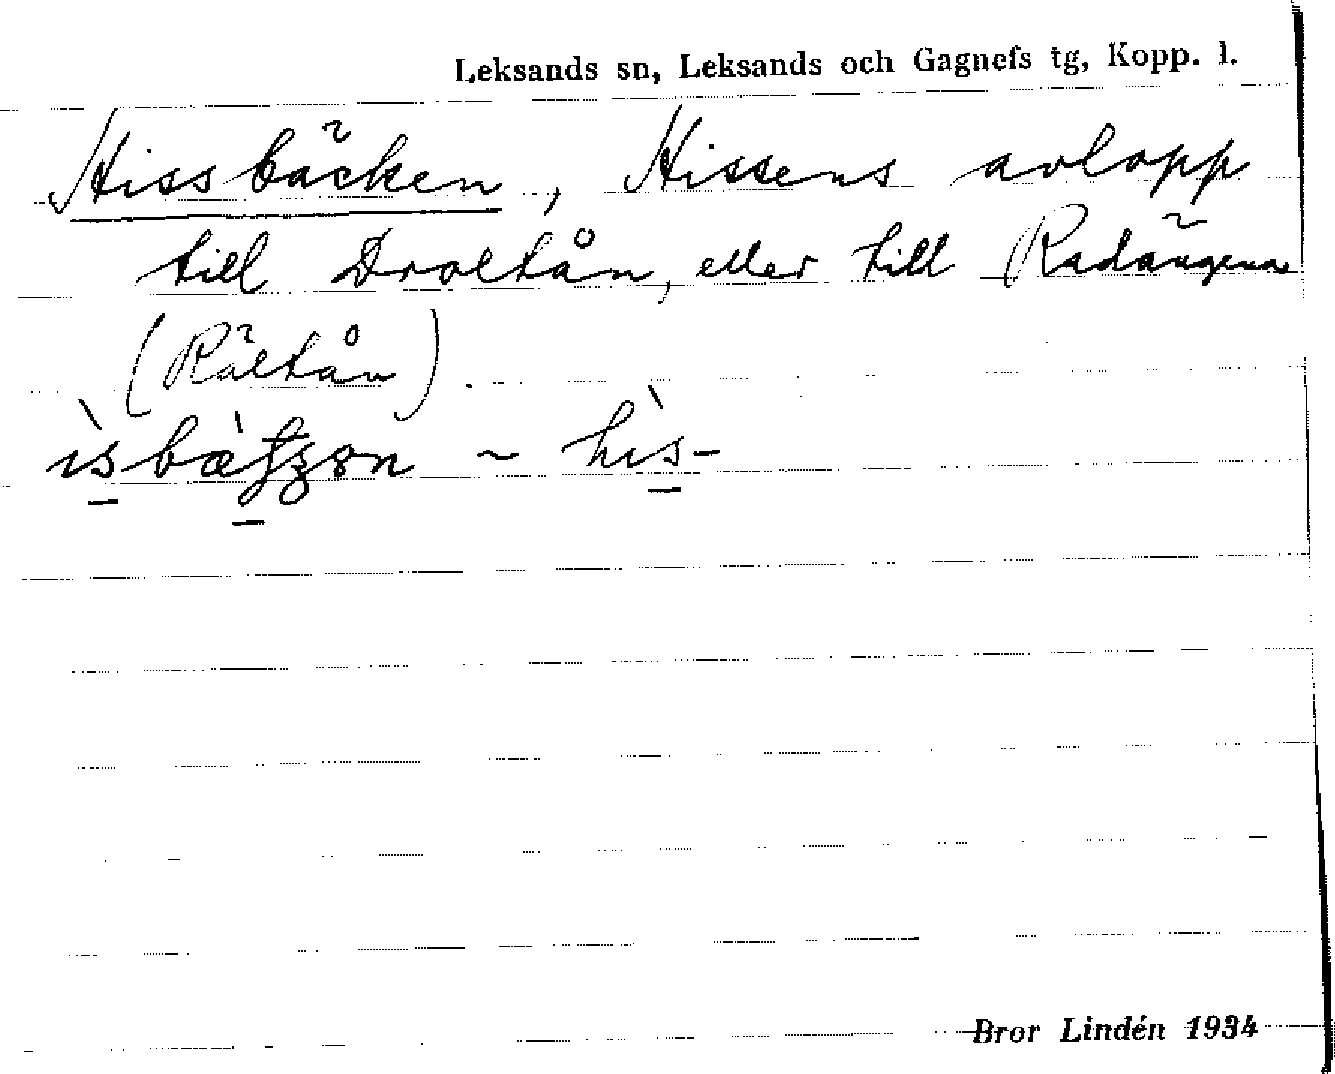 Leksands sn, Leksands och Gagnefs tg, Kopp. l.
Hissbäcken, Hissens avlopp
till Droltån, eller till Radängena
(Rältån).
~ hìs-
Bror Lindén 1934